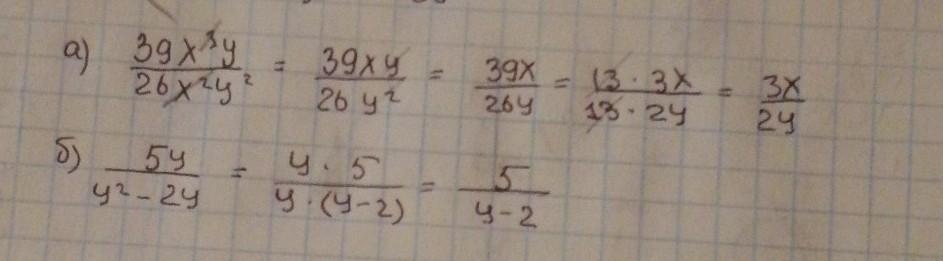 а) 39x³y / 26x²y² = 39xy / 26y² = 39x / 26y = 13 · 3x / 13 · 2y = 3x / 2y
б) 5y / y² - 2y = y · 5 / y · (y - 2) = 5 / y - 2